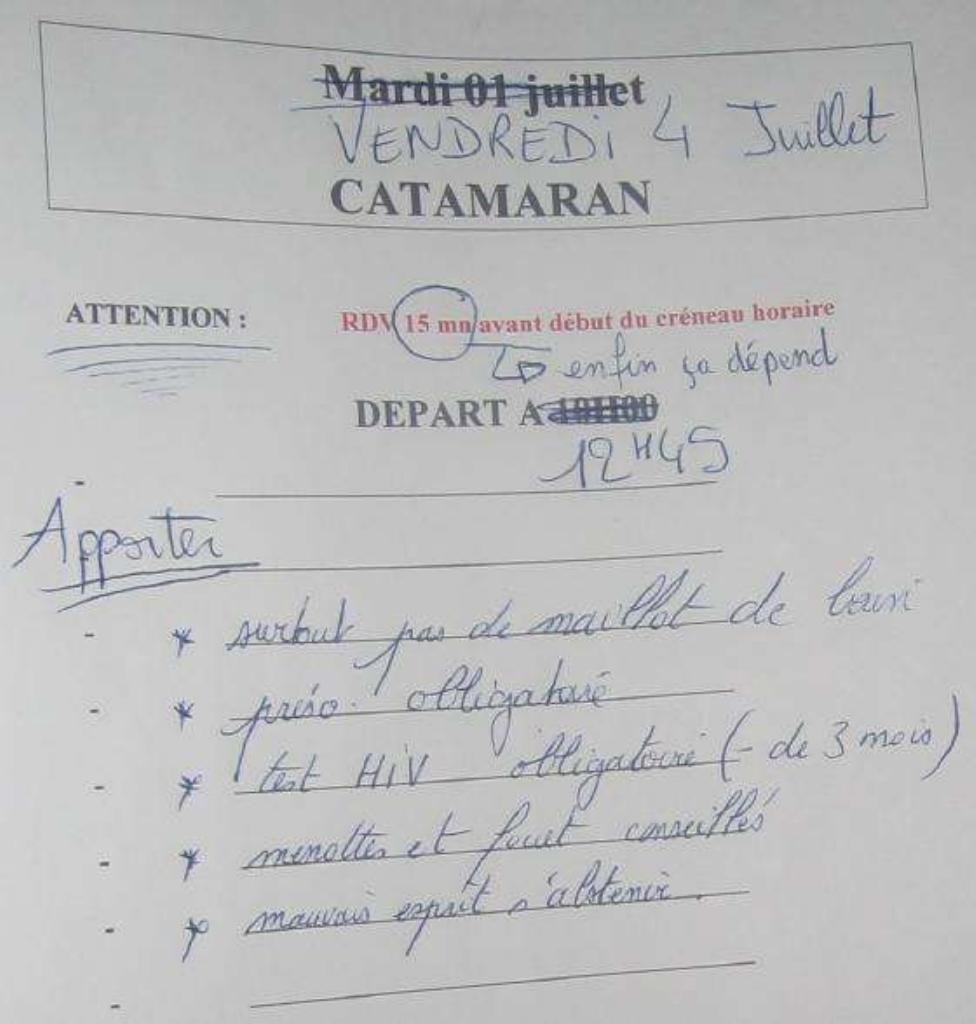 Mardi 01 juillet
VENDREDI 4 Juillet
CATAMARAN
ATTENTION : RDV 15 mn avant début du créneau horaire
enfin ça dépend
DEPART A 10H00
12H45
-
Apporter
- * surtout pas de maillot de bain
- * préso. obligatoire
- * test HIV obligatoire (- de 3 mois)
- * menottes et fouet conseillés
- * mauvais esprit s'abstenir.
-